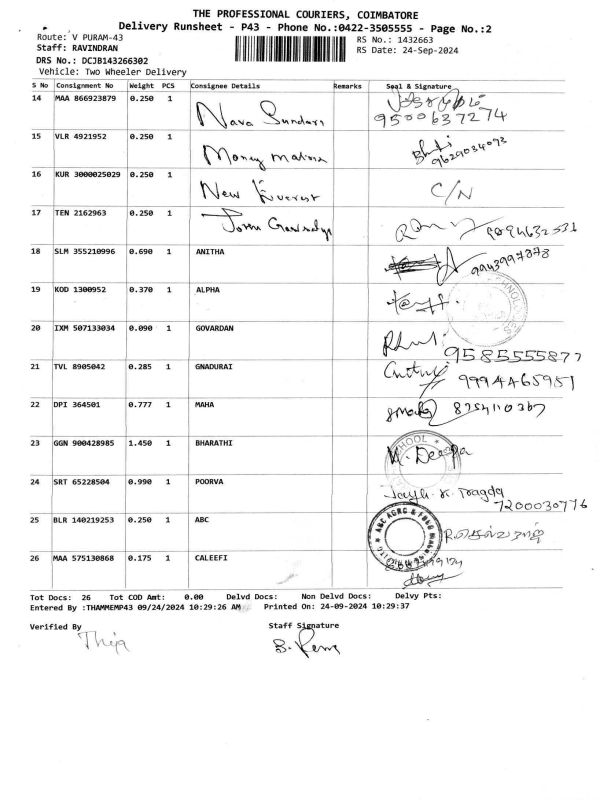 THE PROFESSIONAL COURIERS, COIMBATORE
Delivery Runsheet - P43 - Phone No.:0422-3505555 - Page No.:2
Route: V PURAM-43
RS No.: 1432663
Staff: RAVINDRAN
RS Date: 24-Sep-2024
DRS No.: DCJB143266302
Vehicle: Two Wheeler Delivery
S No Consignment No Weight PCS Consignee Details Remarks Seal & Signature
14 MAA 866923879 0.250 1 Nava Sundari
9500637274
15 VLR 4921952 0.250 1 Money matrix
9629034073
16 KUR 3000025029 0.250 1 New Everest C/N
17 TEN 2162963 0.250 1 John
18 SLM 355210996 0.690 1 ANITHA 9943997878
19 KOD 1300952 0.370 1 ALPHA
20 IXM 507133034 0.090 1 GOVARDAN
9585555877
21 TVL 8905042 0.285 1 GNADURAI 9994465951
22 DPI 364501 0.777 1 MAHA
23 GGN 900428985 1.450 1 BHARATHI SCHOOL
Deepa
24 SRT 65228504 0.990 1 POORVA
7200030776
25 BLR 140219253 0.250 1 ABC ABC AGRO & FOOD
26 MAA 575130868 0.175 1 CALEEFI
Tot Docs: 26 Tot COD Amt: 0.00 Delvd Docs: Non Delvd Docs: Delvy Pts:
Entered By :THAMMEMP43 09/24/2024 10:29:26 AM Printed On: 24-09-2024 10:29:37
Verified By Staff Signature